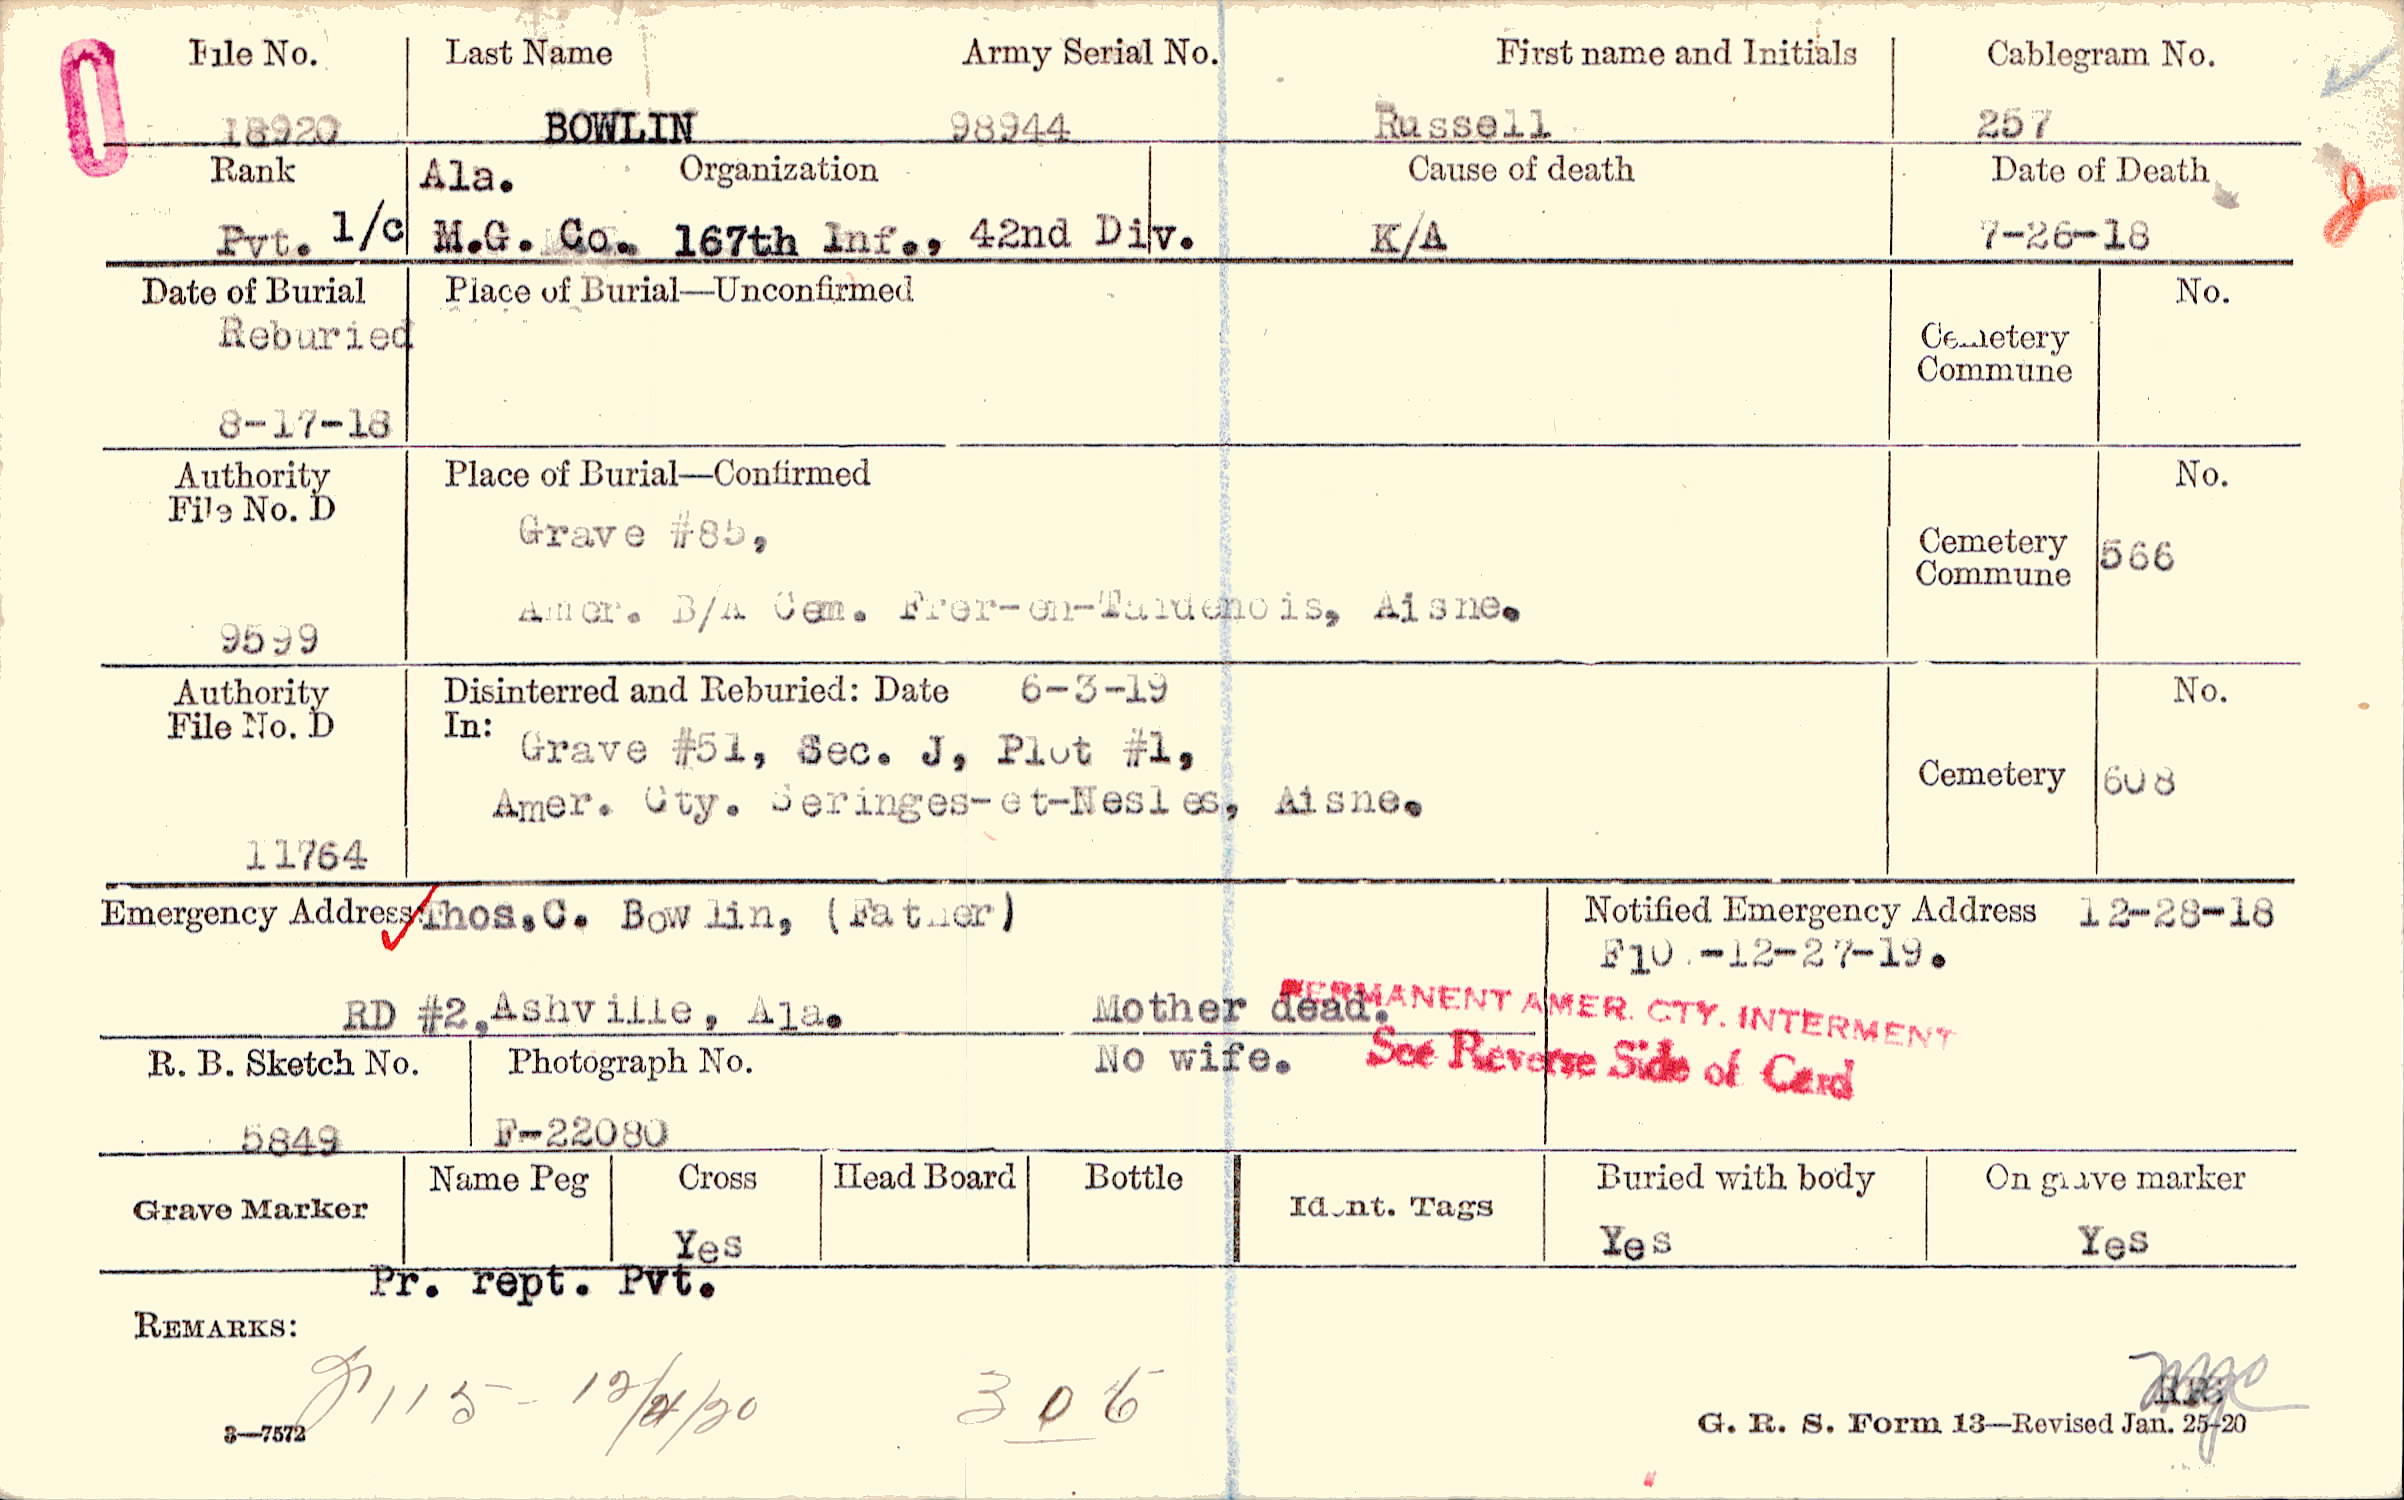 File No. Last Name Army Serial No. First name and Initials Cablegram No.
18920 BOWLIN 98944 Russell 257
Rank Ala. Organization Cause of death Date of Death
Pvt. 1/c M.G. Co. 167th Inf., 42nd Div. K/A 7-26-18
Date of Burial Place of Burial—Unconfirmed No.
Reburied Cemetery
Commune
8-17-18
Authority Place of Burial—Confirmed No.
File No. D
Grave #85,
Cemetery
Commune 566
Amer. B/A Cem. Frer-en-Tardenois, Aisne.
9599
Authority Disinterred and Reburied: Date 6-3-19 No.
File No. D In:
Grave #51, Sec. J, Plot #1,
Cemetery 608
Amer. Cty. Seringes-et-Nesles, Aisne.
11764
Emergency Address: Thos.C. Bowlin, (Father) Notified Emergency Address 12-28-18
-12-27-19.
RD #2, Ashville, Ala. Mother dead. PERMANENT AMER. CTY. INTERMENT
R. B. Sketch No. Photograph No. No wife. See Reverse Side of Card
5849 F-22080
Grave Marker Name Peg Cross Head Board Bottle Ident. Tags Buried with body On grave marker
Yes Yes Yes
Pr. rept. Pvt.
REMARKS:
115 - 12/4/20 306
3—7572 G. R. S. Form 13—Revised Jan. 25-20